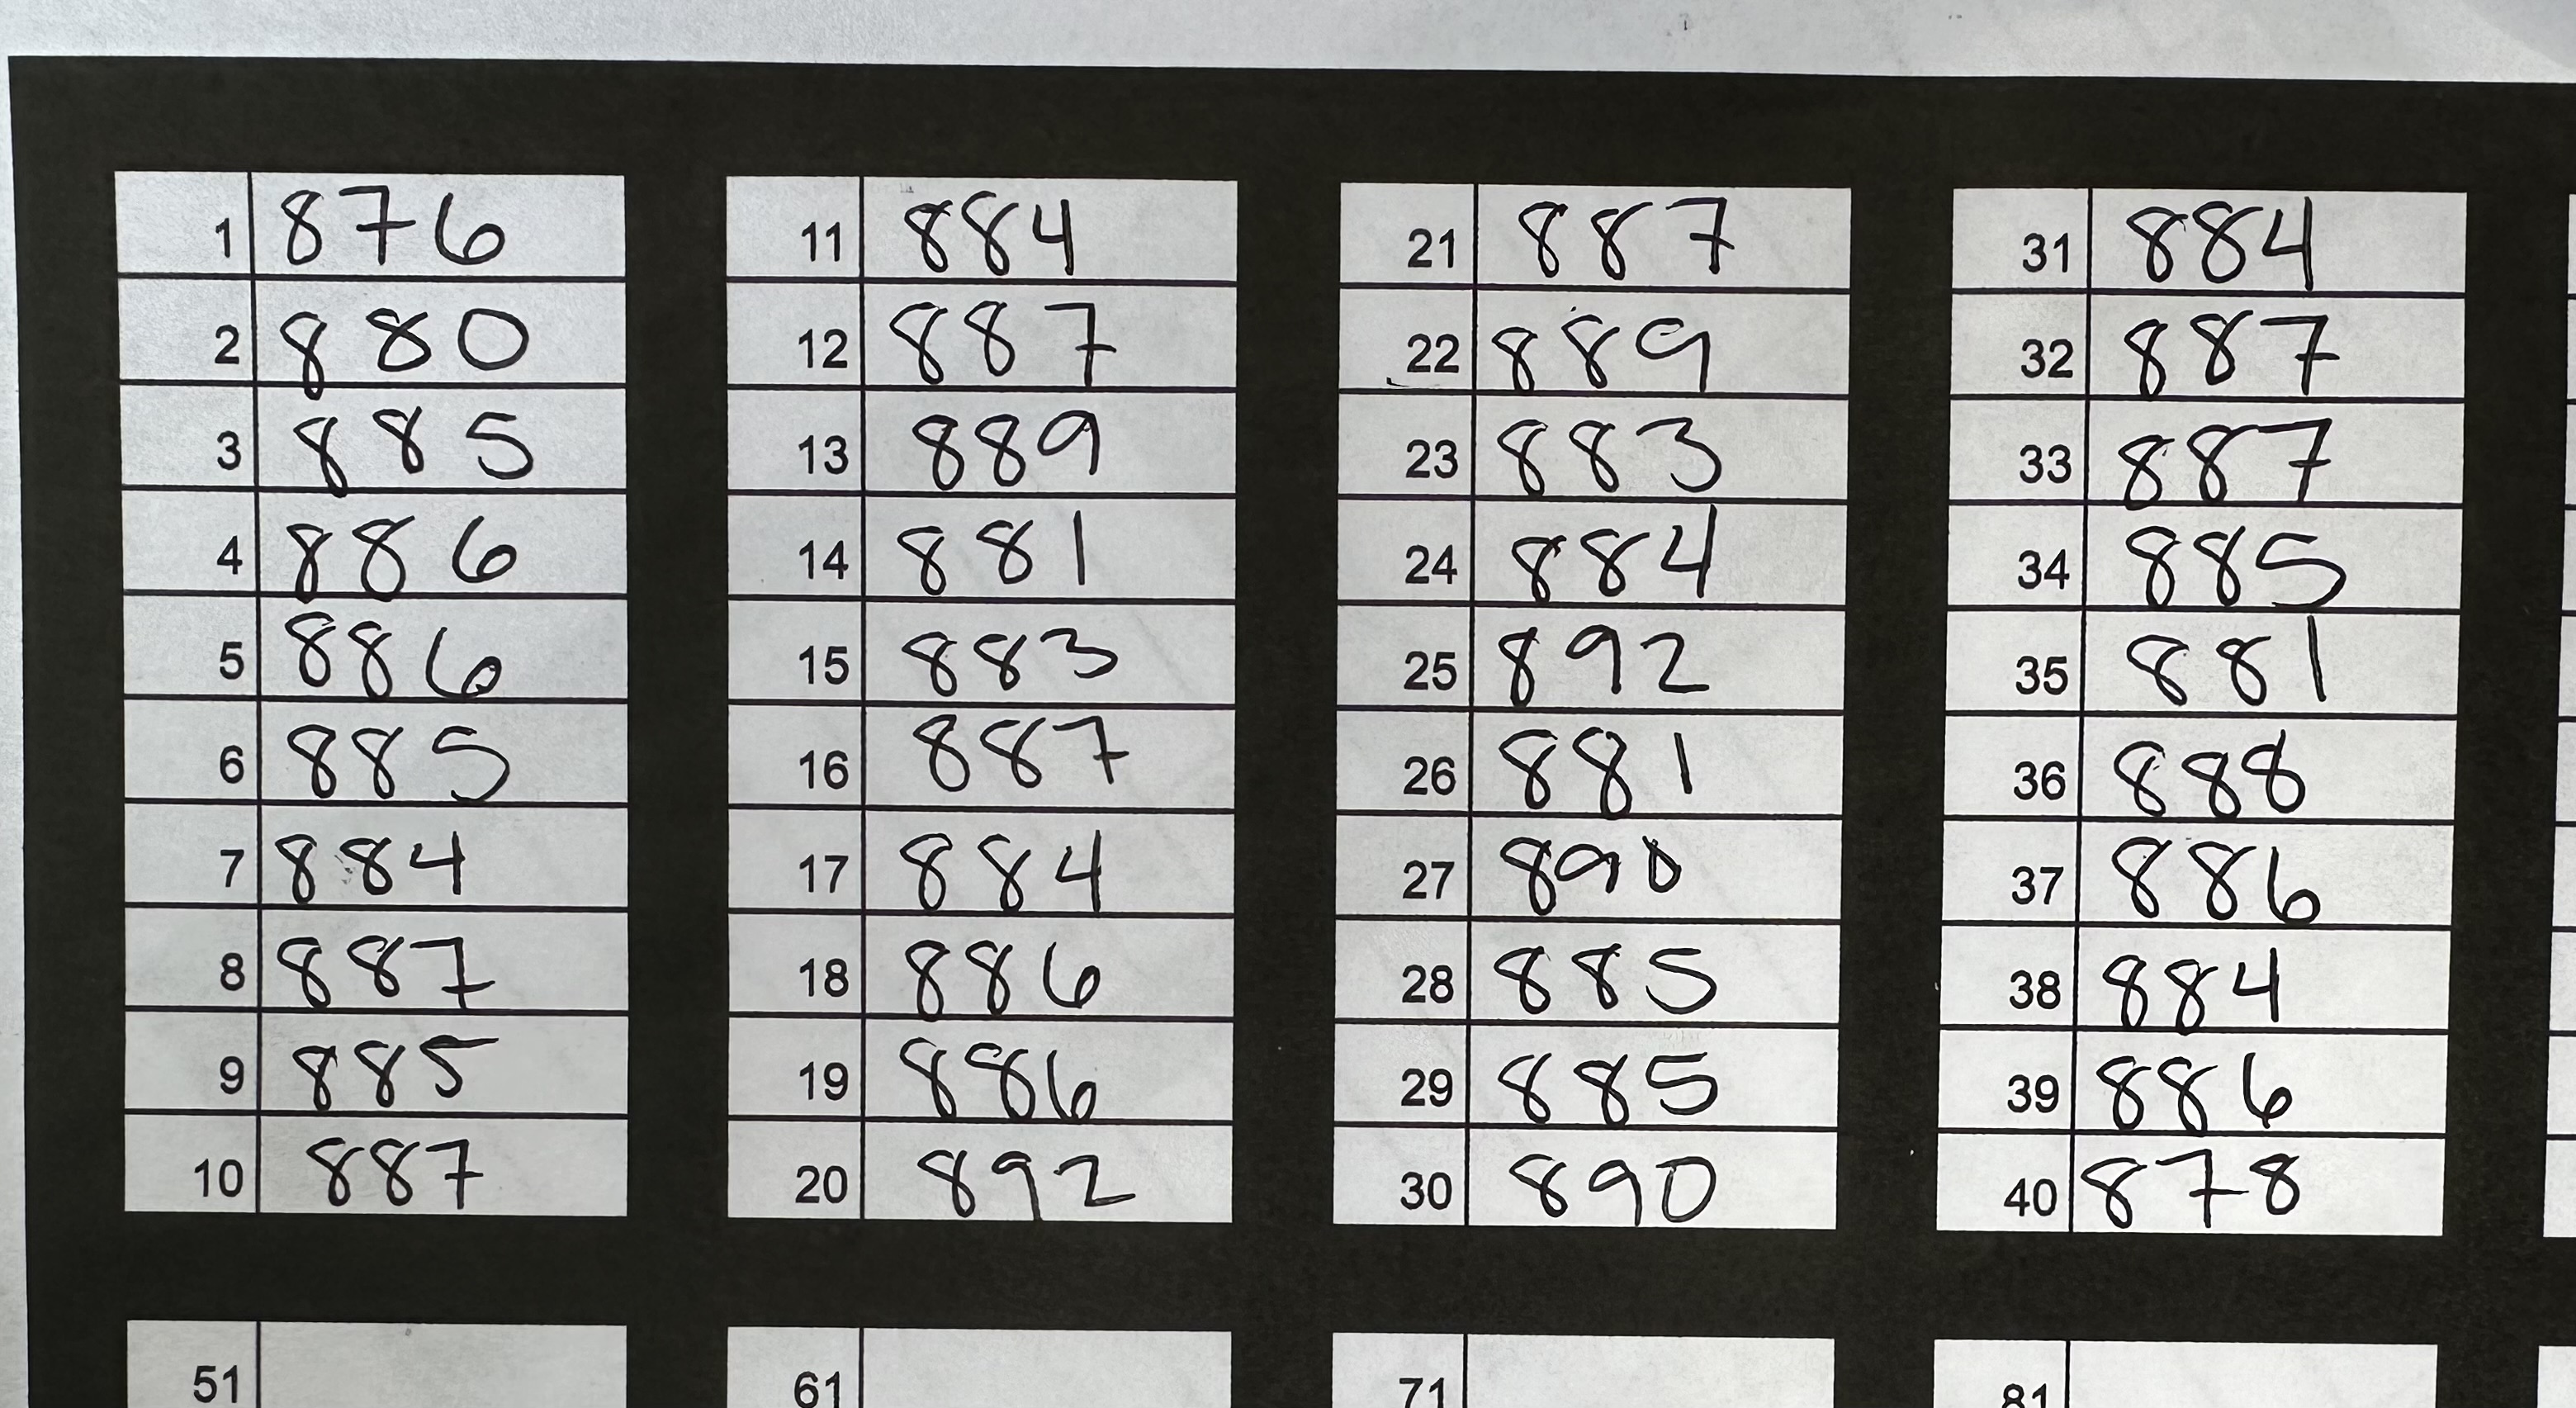 1 876
2 880
3 885
4 886
5 886
6 885
7 884
8 887
9 885
10 887
11 884
12 887
13 889
14 881
15 883
16 887
17 884
18 886
19 886
20 892
21 887
22 889
23 883
24 884
25 892
26 881
27 890
28 885
29 885
30 890
31 884
32 887
33 887
34 885
35 881
36 888
37 886
38 884
39 886
40 878
51
61
71
81